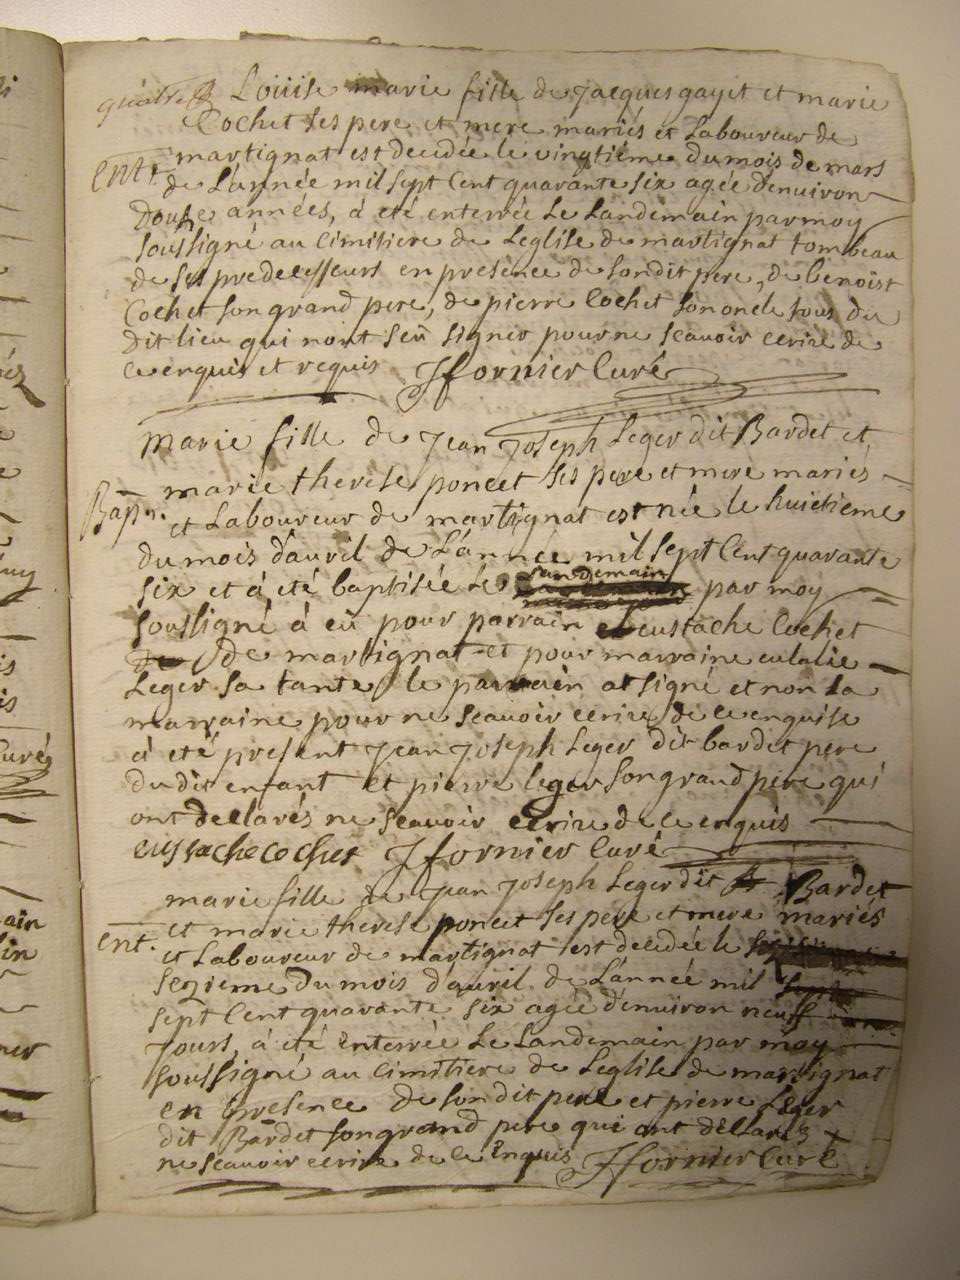 quatre Loüise marie fille de Jacques gayet et marie
Cochet ses pere et mere mariés et Laboureur de
martignat est decedée le vingtième du mois de mars
ent. de L'année mil sept Cent quarante six agée d'enuiron
Douse années, à été enterrée Le Landemain par moy
soussigné au Cimitiere de Leglise de martignat tombeau
de ses predecesseurs en presence de sondit pere, de benoist
Cochet son grand pere, de pierre Cochet son oncle tous du
dit lieu qui nont seû signer pour ne scauoir ecrire de
ce enquis et requis Jfornier Curé
marie fille de Jean Joseph Leger dit Bardet et
marie therese poncet ses pere et mere mariés
Bapt. et Laboureur de martignat est née le huictieme
du mois d'auril de L'année mil sept Cent quarante
six et à été baptisée Le Landemain par moy
soussigné à eü pour parrain eustache Cochet
de martignat et pour marraine eulalie
Leger sa tante, le parrain at signé et non la
marraine pour ne scauoir ecrire de ce enquise
à été present Jean Joseph Leger dit bardet pere
du dit enfant et pierre leger son grand pere qui
ont declarés ne scauoir ecrire de ce enquis
eustache cochet Jfornier Curé
marie fille de Jean Joseph Leger dit Bardet
et marie therese poncet ses pere et mere mariés
ent. et Laboureur de martignat est decedée le
sezieme du mois d'auril de L'année mil
sept Cent quarante six agée d'enuiron neuff
Jours, à été enterrée Le Landemain par moy
soussigné au Cimitiere de Leglise de martignat
en presence de sondit pere et pierre Leger
dit Bardet son grand pere qui ont déclarés
ne scauoir ecrire de ce enquis Jfornier Curé